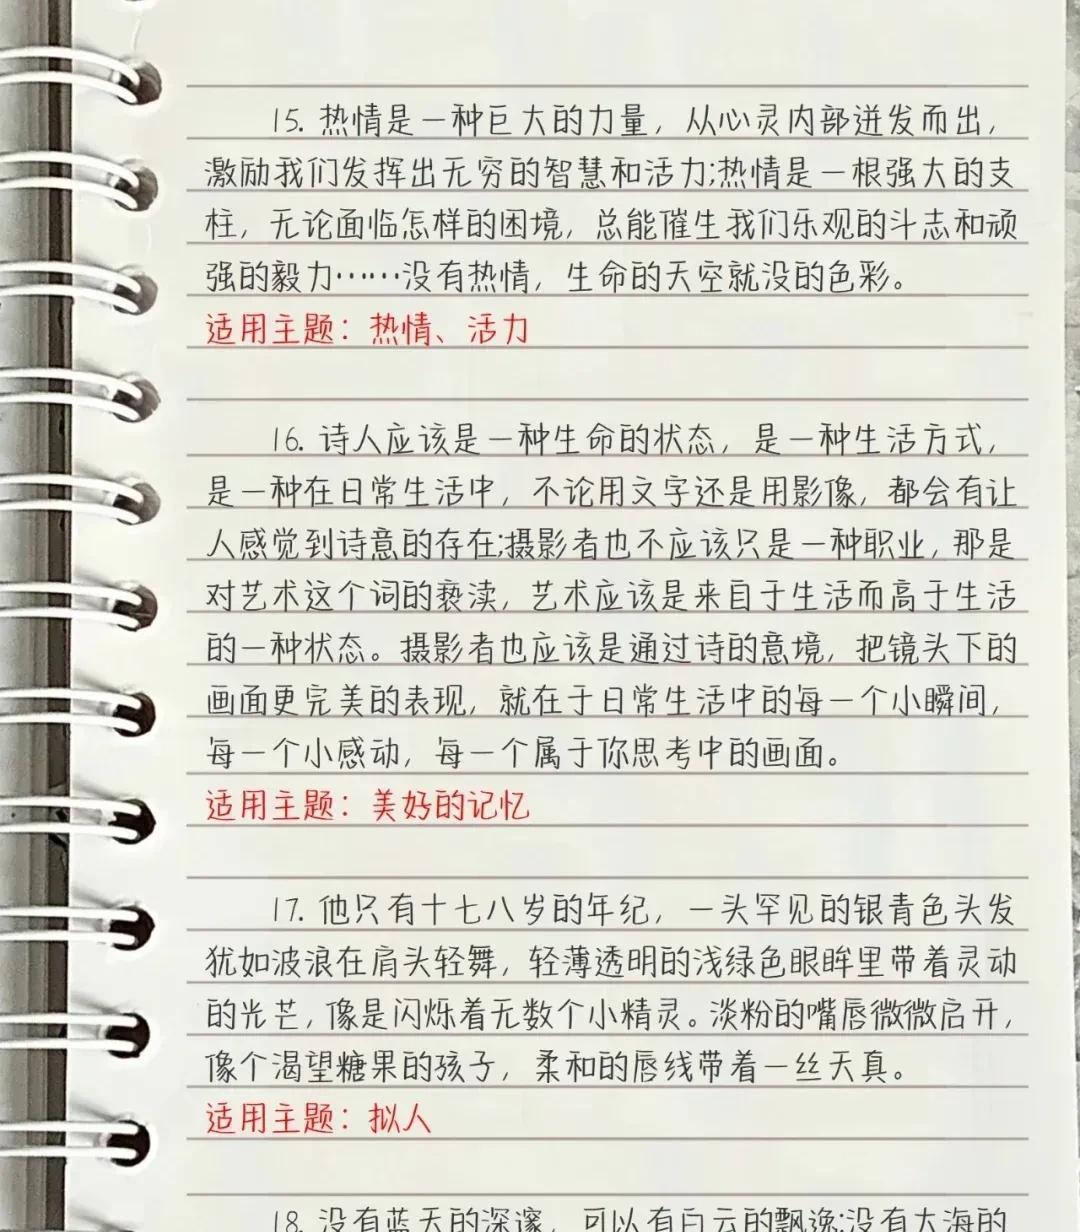 15. 热情是一种巨大的力量，从心灵内部迸发而出，
激励我们发挥出无穷的智慧和活力;热情是一根强大的支
柱，无论面临怎样的困境，总能催生我们乐观的斗志和顽
强的毅力……没有热情，生命的天空就没的色彩。
适用主题：热情、活力
16. 诗人应该是一种生命的状态，是一种生活方式，
是一种在日常生活中，不论用文字还是用影像，都会有让
人感觉到诗意的存在;摄影者也不应该只是一种职业，那是
对艺术这个词的亵渎，艺术应该是来自于生活而高于生活
的一种状态。摄影者也应该是通过诗的意境，把镜头下的
画面更完美的表现，就在于日常生活中的每一个小瞬间，
每一个小感动，每一个属于你思考中的画面。
适用主题：美好的记忆
17. 他只有十七八岁的年纪，一头罕见的银青色头发
犹如波浪在肩头轻舞，轻薄透明的浅绿色眼眸里带着灵动
的光芒，像是闪烁着无数个小精灵。淡粉的嘴唇微微启开，
像个渴望糖果的孩子，柔和的唇线带着一丝天真。
适用主题：拟人
18. 没有蓝天的深邃，可以有白云的飘逸;没有大海的